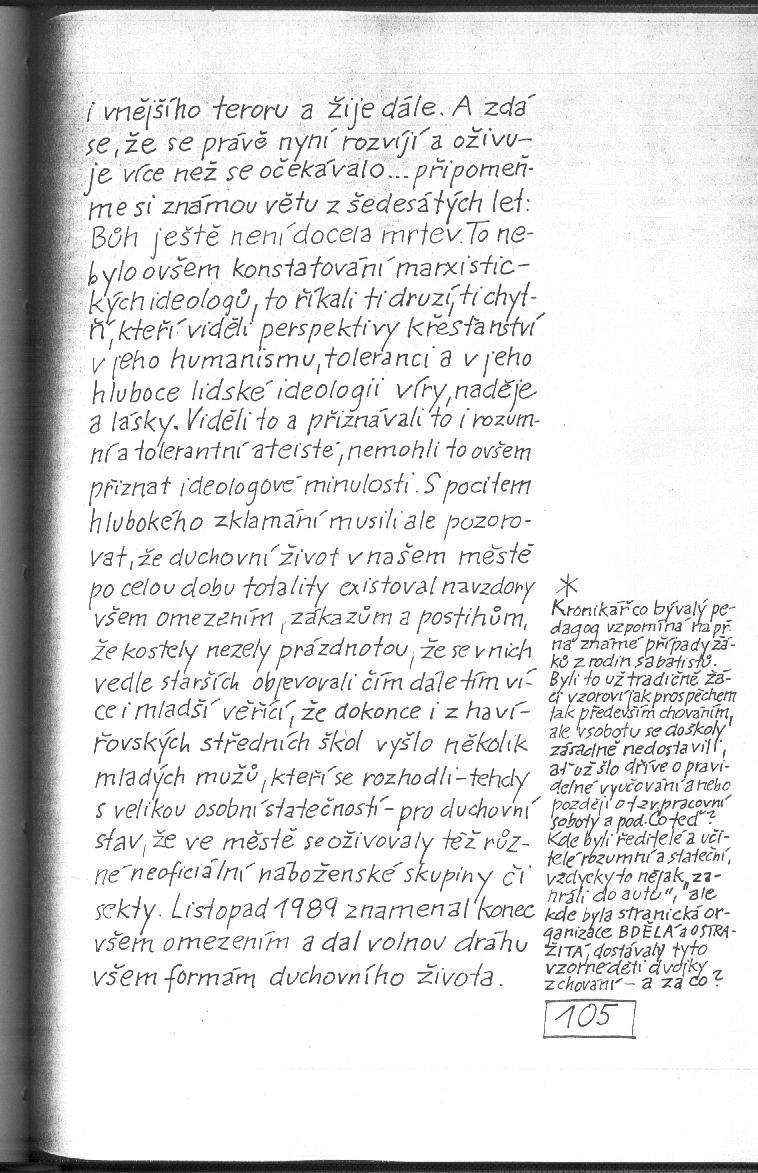 i vnějšího teroru a žije dále. A zdá
se, že se právě nyní rozvíjí a oživu-
je více než se očekávalo... připomeň-
me si známou větu z šedesátých let:
Bůh ještě není docela mrtev. To ne-
bylo ovšem konstatování marxistic-
kých ideologů, to říkali ti druzí, ti chyt-
ří, kteří viděli perspektivy křesťanství
v jeho humanismu, toleranci a v jeho
hluboce lidské ideologii víry, naděje
a lásky. Viděli to a přiznávali to i rozum-
ní a tolerantní ateisté, nemohli to ovšem
přiznat ideologové minulosti. S pocitem
hlubokého zklamání musili ale pozoro-
vat, že duchovní život v našem městě
po celou dobu totality existoval navzdory
všem omezením, zákazům a postihům,
že kostely nezely prázdnotou, že se v nich
vedle starších objevovali čím dále tím ví-
ce i mladší věřící, že dokonce i z haví-
řovských středních škol vyšlo několik
mladých mužů, kteří se rozhodli - tehdy
s velikou osobní statečností - pro duchovní
stav, že ve městě se oživovaly též růz-
né neoficiální náboženské skupiny či
sekty. Listopad 1989 znamenal konec
všem omezením a dal volnou dráhu
všem formám duchovního života.
*
Kronikář co bývalý pe-
dagog vzpomíná např.
na známé případy žá-
ků z rodin sabatistů.
Byli to už tradičně žá-
ci vzoroví jak prospěchem
tak především chováním,
ale v sobotu se do školy
zásadně nedostavili,
ať už šlo dříve o pravi-
delné vyučování anebo
později o tzv pracovní
soboty a pod. Co teď?
Kde byli ředitelé a uči-
telé rozumní a stateční,
vždycky to nějak „za-
hráli do autu", ale
kde byla stranická or-
ganizace BDĚLÁ a OSTRA-
ŽITÁ, dostávaly tyto
vzorné děti dvojky
z chování - a za co?
105